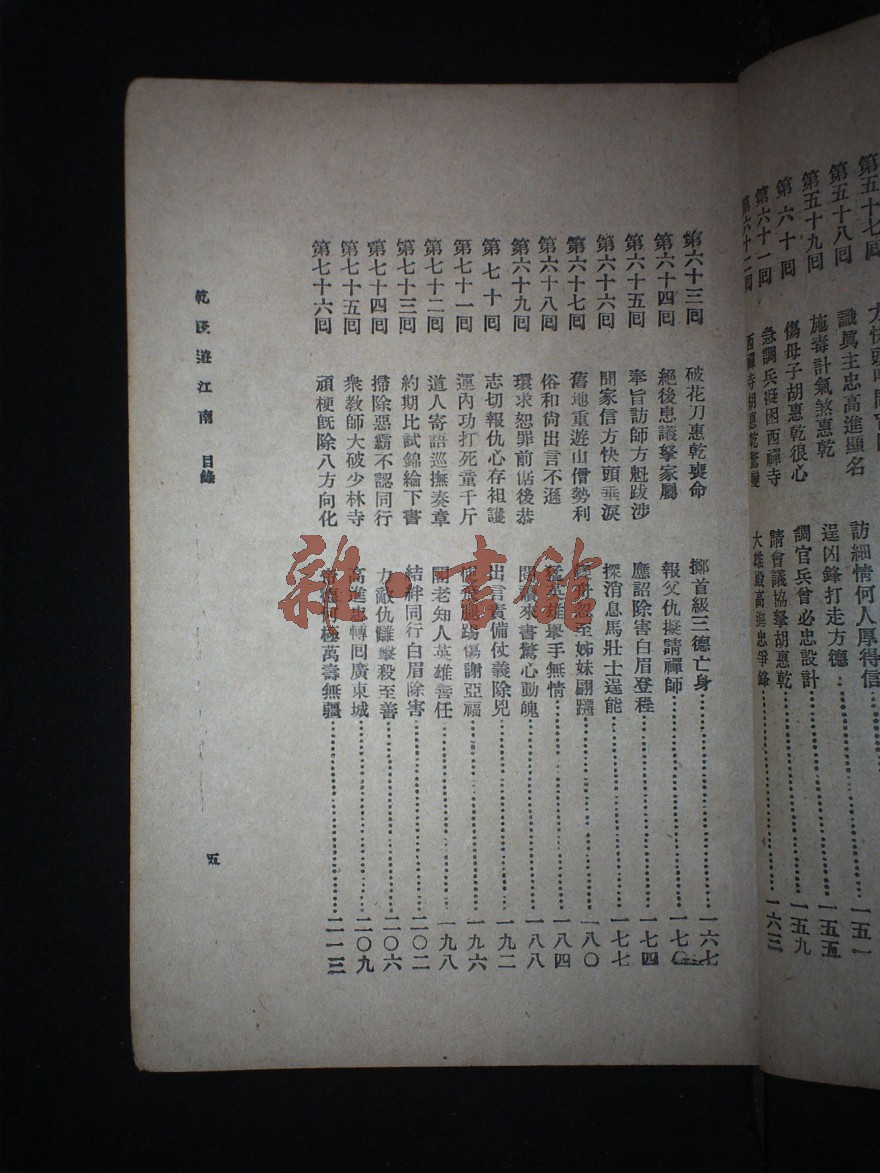 第五十七回
第五十八回 識眞主忠高進顯名 訪細情何人厚得信 一五一
第五十九回 施毒計氣煞惠乾 逞凶鋒打走方德 一五五
第六十回 傷母子胡惠乾很心 調官兵曾必忠設計 一五九
第六十一回 急調兵涎困西禪寺 請會議協拏胡惠乾 一六三
第六十二回 西禪寺胡惠乾驚變 大雄殿高進忠爭鋒
第六十三回 破花刀惠乾喪命 擲首級三德亡身 一六七
第六十四回 絕後患議拏家屬 報父仇擬請禪師 一七〇
第六十五回 奉旨訪師方魁跋涉 應詔除害白眉登程 一七四
第六十六回 聞家信方快頭垂淚 探消息馬壯士逞能 一七七
第六十七回 舊地重遊山僧勢利 忽至姊妹翩躚 一八〇
第六十八回 俗和尙出言不遜 英雄舉手無情 一八四
第六十九回 環求恕罪前倨後恭 閱來書驚心動魄 一八八
第七十回 志切報仇心存袒護 出言責備仗義除兇 一九二
第七十一回 運內功打死童千斤 踢傷謝亞福 一九六
第七十二回 道人寄語巡撫奏章 閣老知人英雄善任 一九八
第七十三回 約期比試錦綸下書 結絆同行白眉除害 二〇二
第七十四回 掃除惡霸不認同行 力敵仇讎擊殺至善 二〇六
第七十五回 衆教師大破少林寺 高進忠轉囘廣東城 二〇九
第七十六回 頑梗旣除八方向化 帝德何極萬壽無疆 二一三
乾隆遊江南 目錄
五
雜·書館